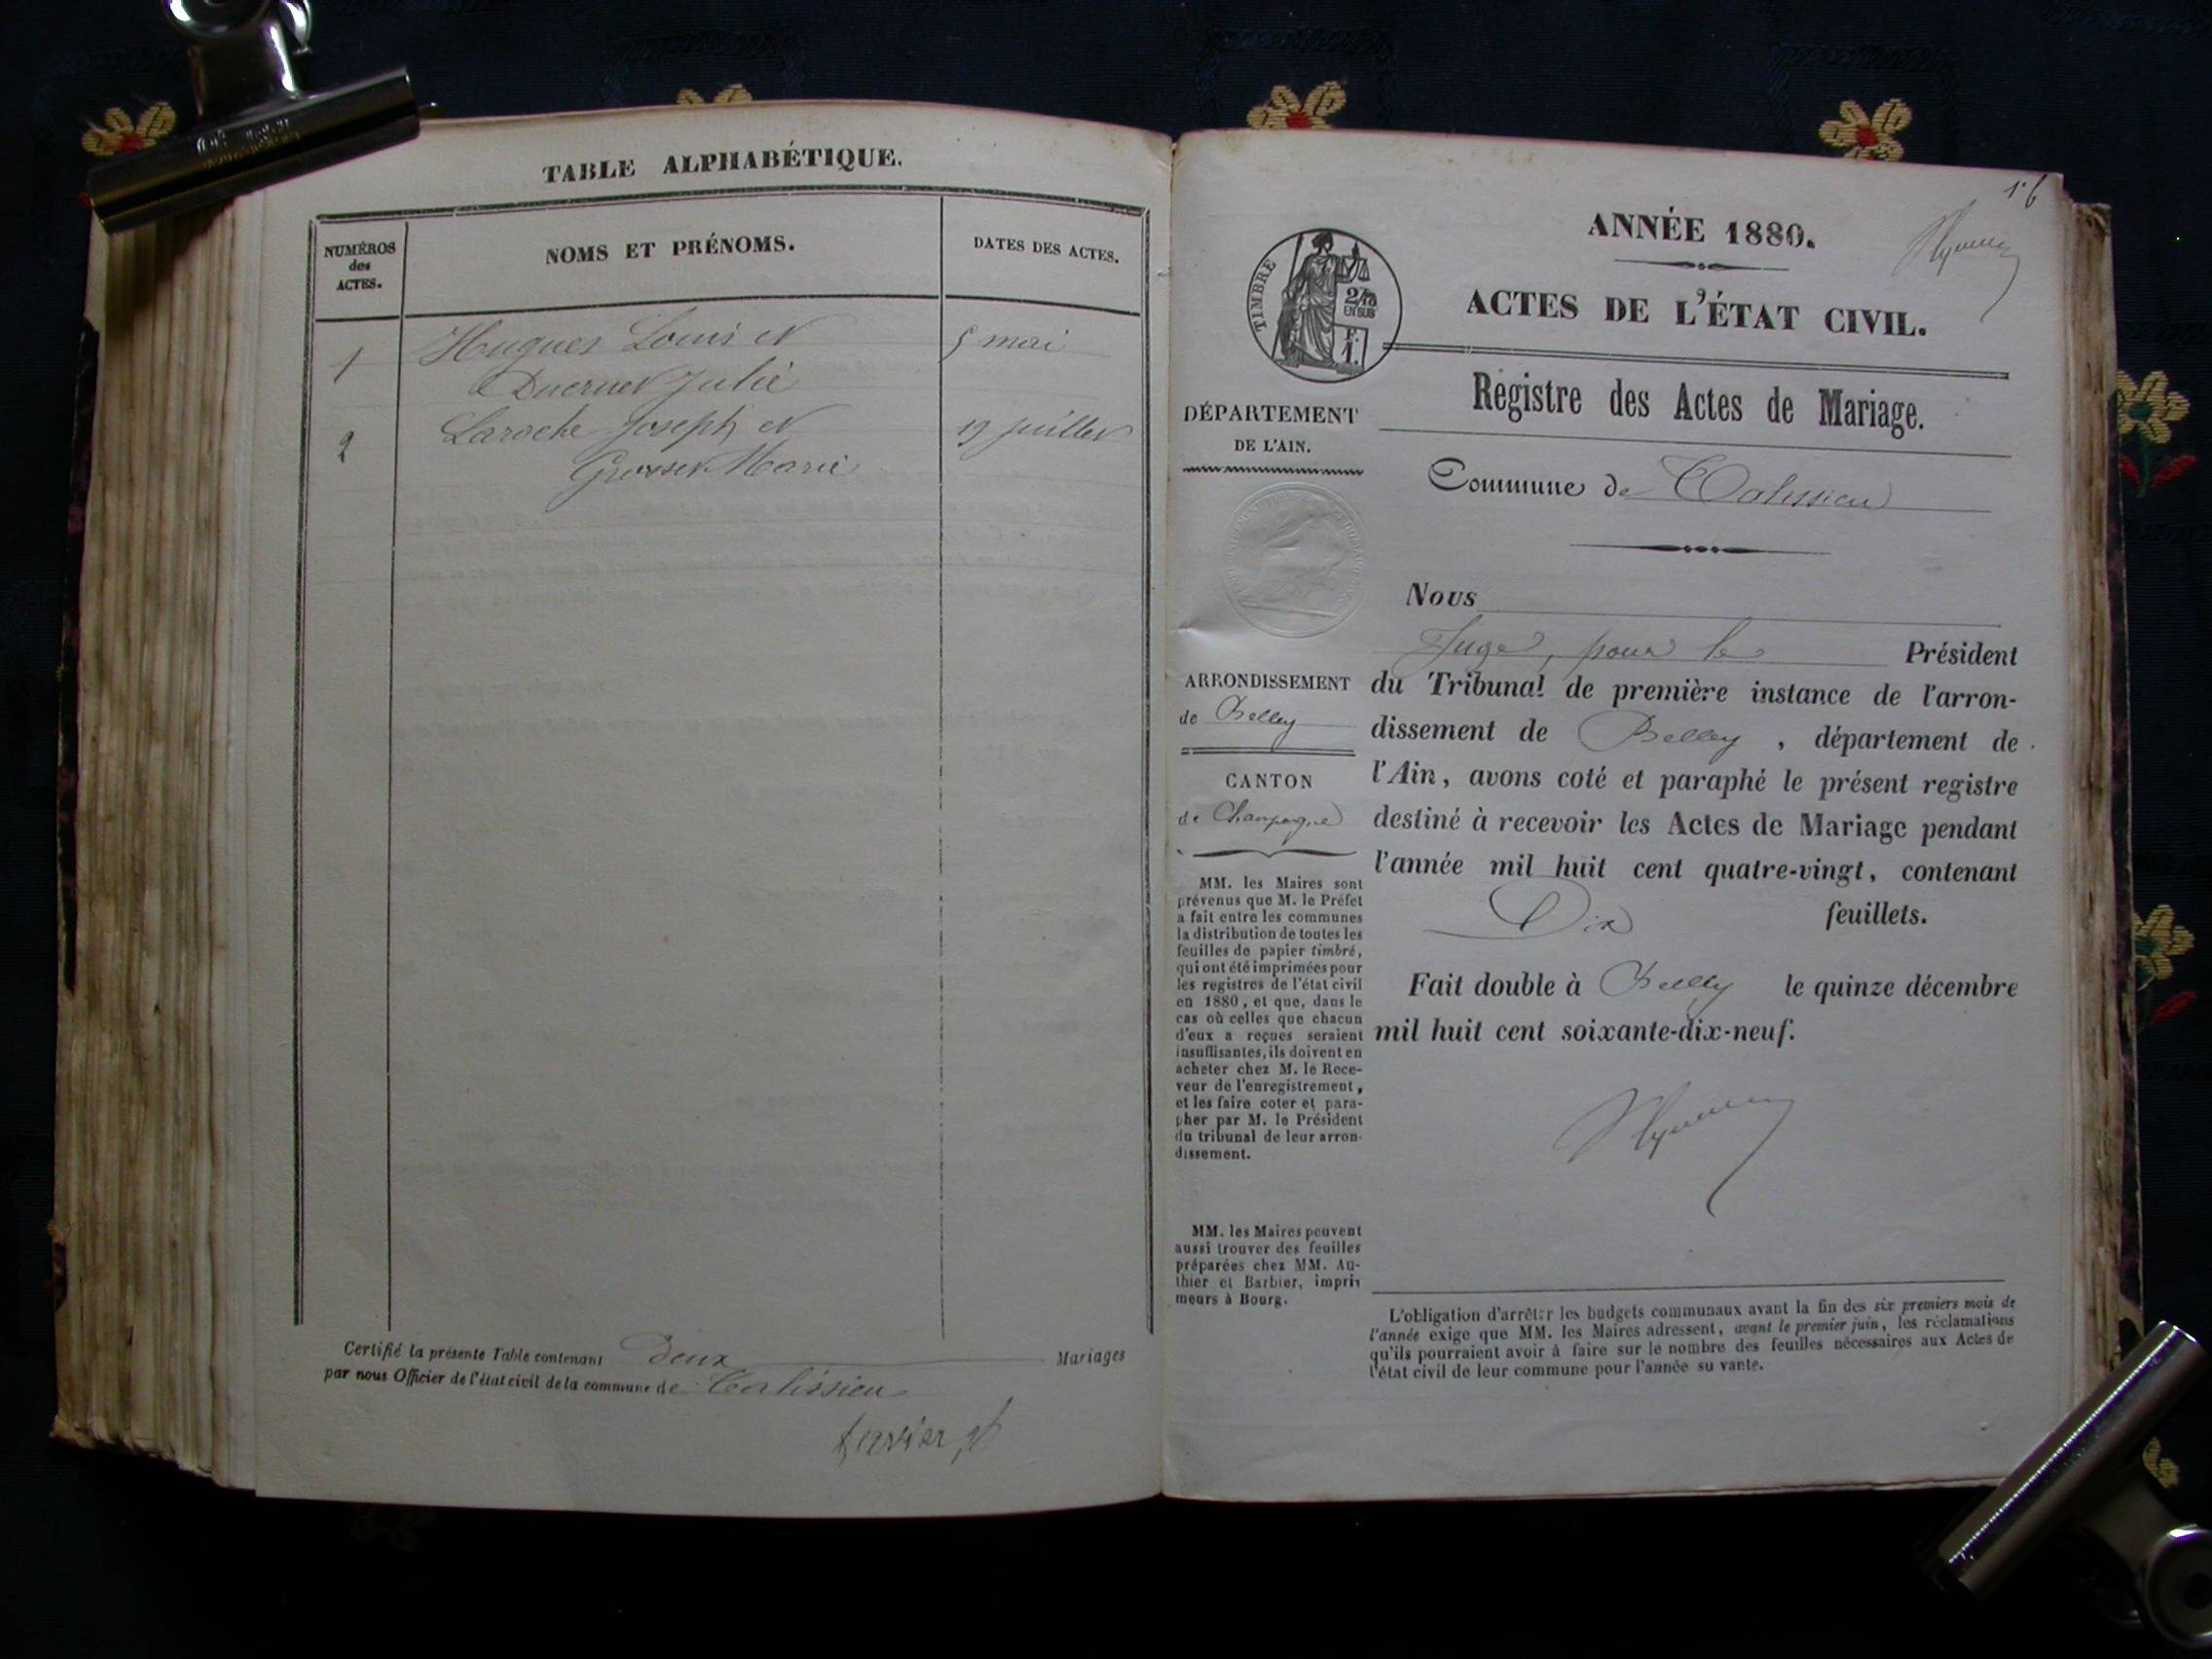 TABLE ALPHABÉTIQUE.
NUMÉROS
des
ACTES.
NOMS ET PRÉNOMS.
DATES DES ACTES.
1
Hugues Louis et
5 mai
Ducruet Julie
2
Laroche Joseph et
19 juillet
Grosset Marie
Certifié la présente Table contenant deux Mariages
par nous Officier de l'état civil de la commune de Talissieu
ANNÉE 1880.
ACTES DE L'ÉTAT CIVIL.
TIMBRE
2/10
EN SUS
F.
1.
Registre des Actes de Mariage.
DÉPARTEMENT
DE L'AIN.
Commune de Talissieu
Nous
Juge, pour le Président
ARRONDISSEMENT
de Belley
CANTON
de Champagne
du Tribunal de première instance de l'arron-
dissement de Belley, département de
l'Ain, avons coté et paraphé le présent registre
destiné à recevoir les Actes de Mariage pendant
l'année mil huit cent quatre-vingt, contenant
Dix feuillets.
Fait double à Belley le quinze décembre
mil huit cent soixante-dix-neuf.
MM. les Maires sont
prévenus que M. le Préfet
a fait entre les communes
la distribution de toutes les
feuilles de papier timbré,
qui ont été imprimées pour
les registres de l'état civil
en 1880, et que, dans le
cas où celles que chacun
d'eux a reçues seraient
insuffisantes, ils doivent en
acheter chez M. le Rece-
veur de l'enregistrement,
et les faire coter et para-
pher par M. le Président
du tribunal de leur arron-
dissement.
MM. les Maires peuvent
aussi trouver des feuilles
préparées chez MM. Au-
thier et Barbier, impri
meurs à Bourg.
L'obligation d'arrêter les budgets communaux avant la fin des six premiers mois de
l'année exige que MM. les Maires adressent, avant le premier juin, les réclamations
qu'ils pourraient avoir à faire sur le nombre des feuilles nécessaires aux Actes de
l'état civil de leur commune pour l'année su vante.